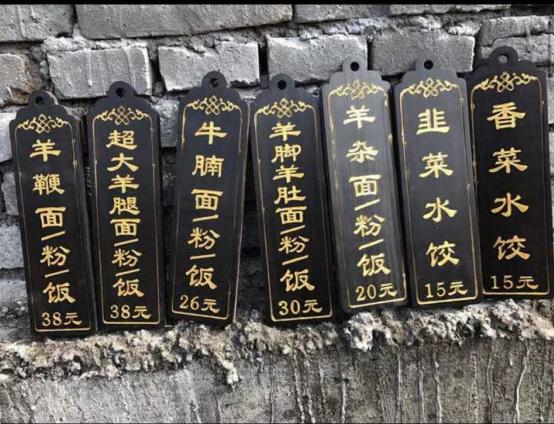 羊鞭面/粉/饭
38元
超大羊腿面/粉/饭
38元
牛腩面/粉/饭
26元
羊脚羊肚面/粉/饭
30元
羊杂面/粉/饭
20元
韭菜水饺
15元
香菜水饺
15元